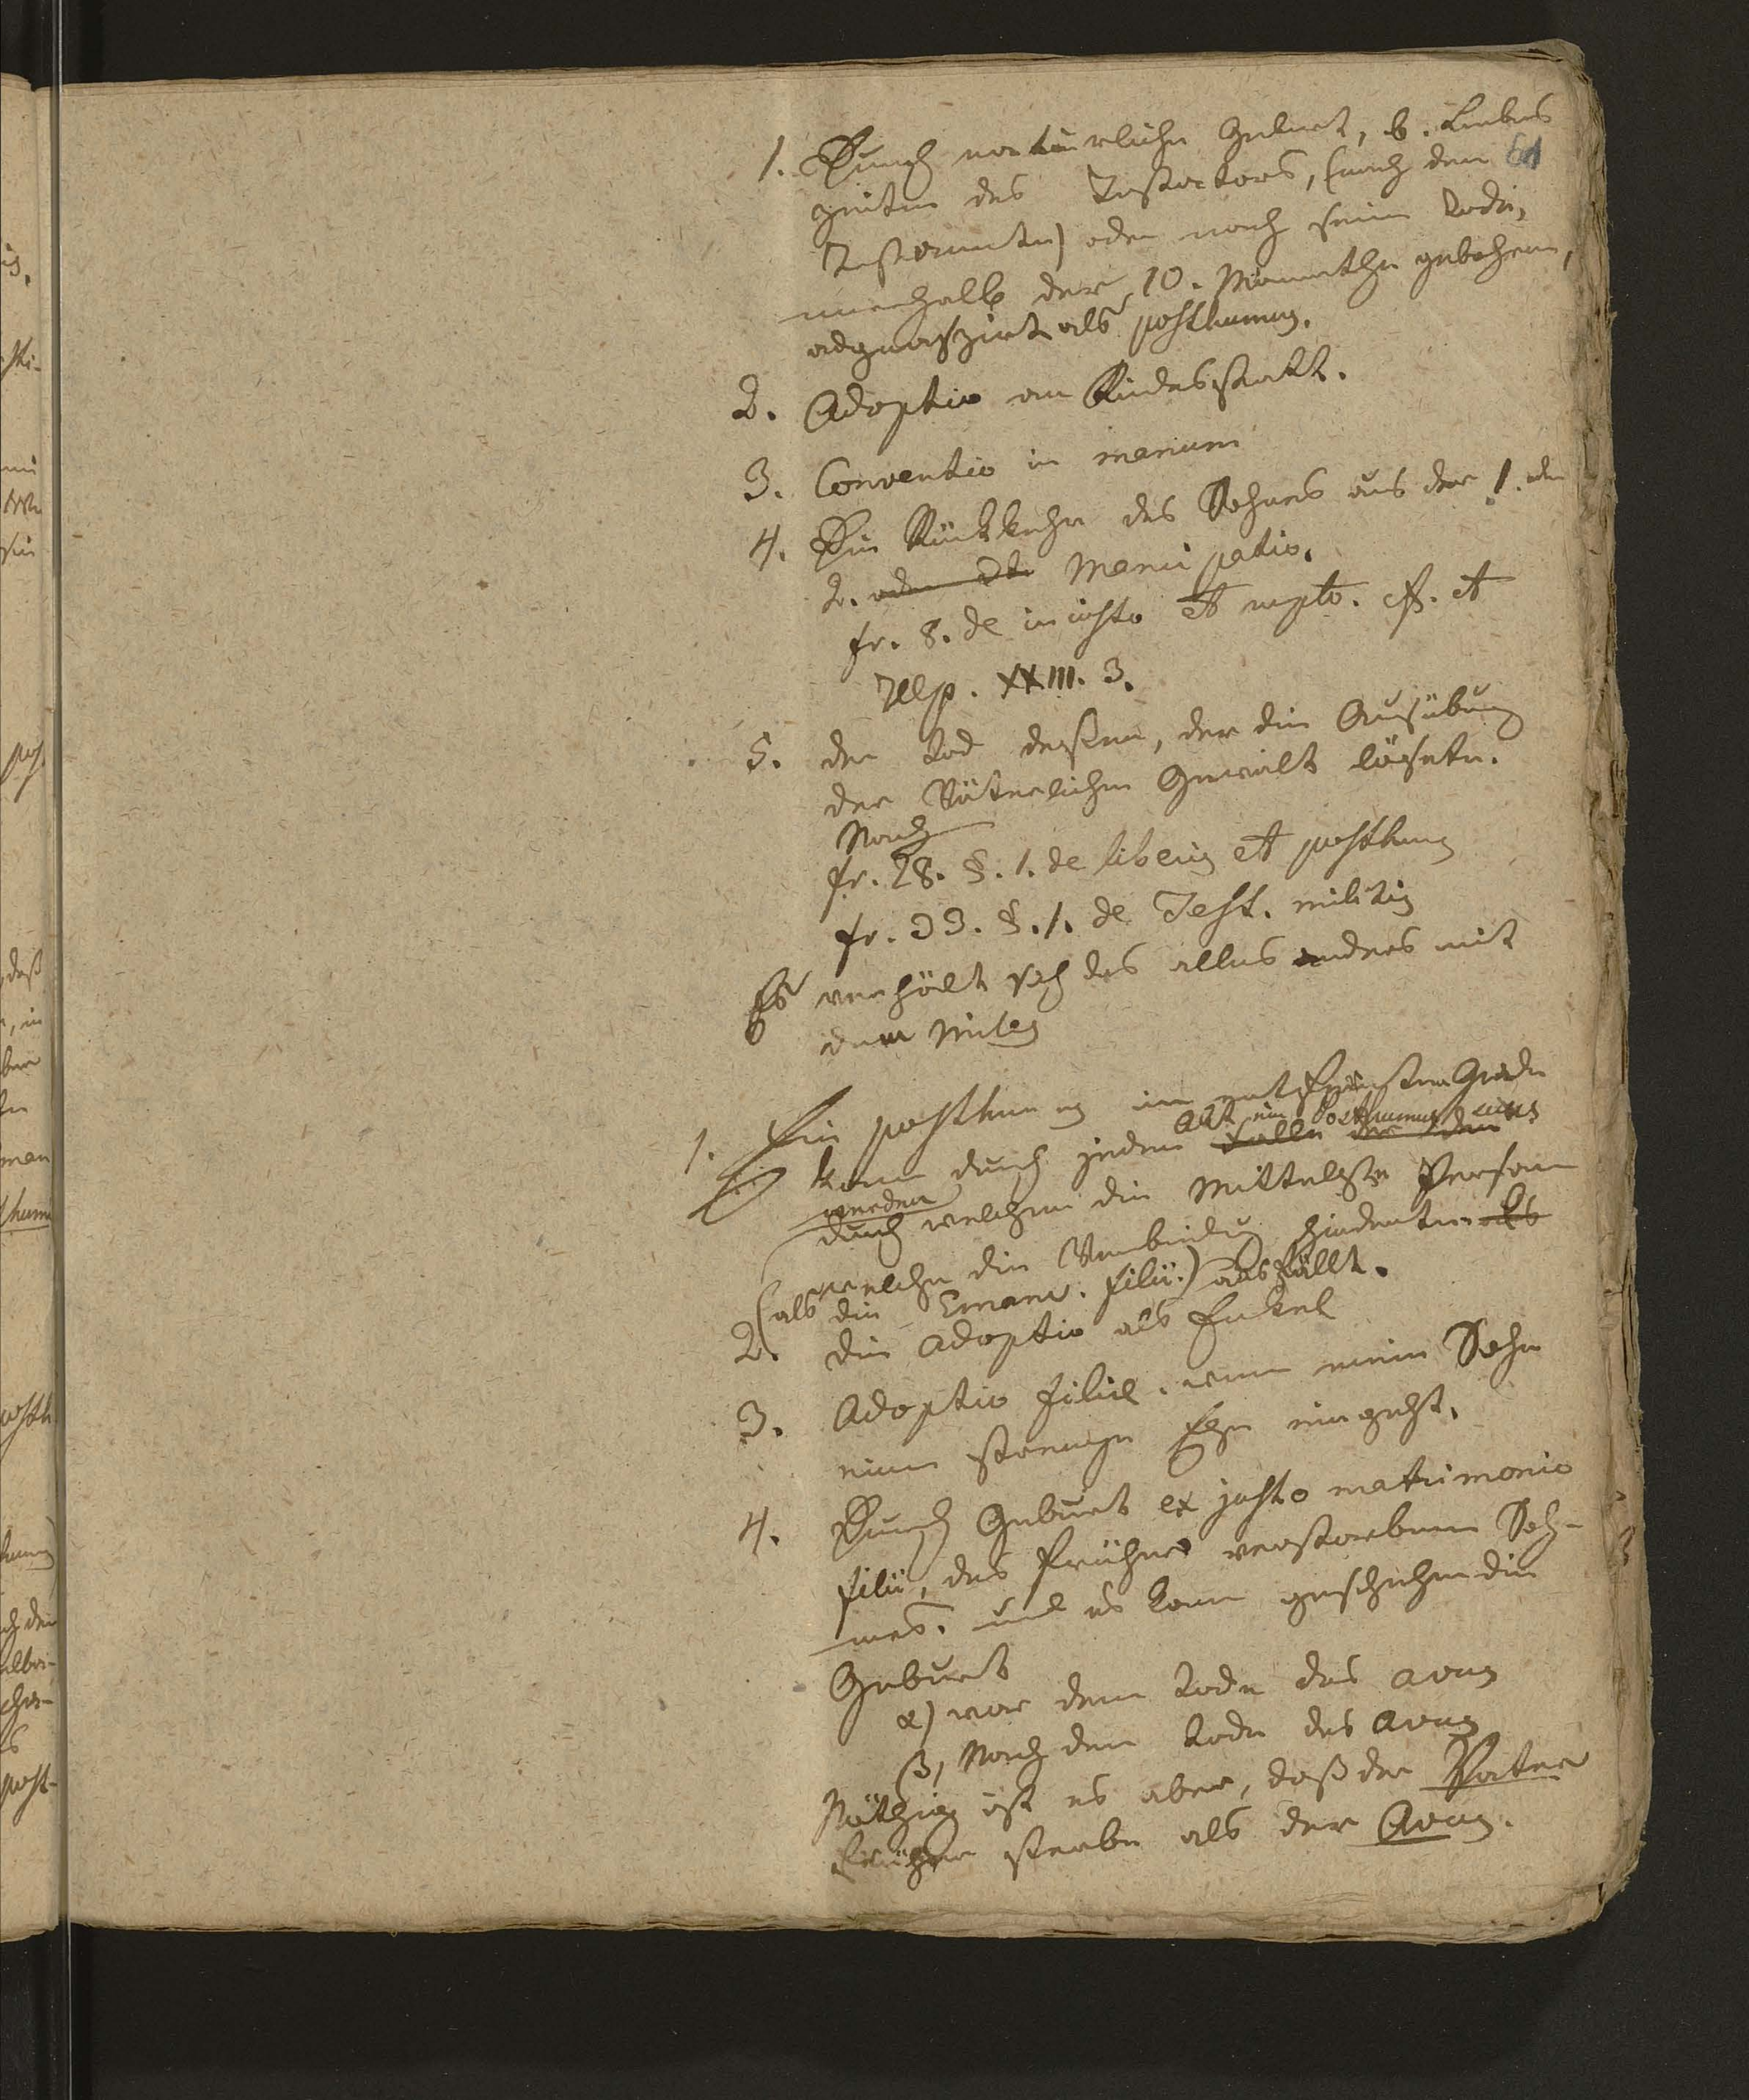 1. Durch natürliche Geburt, b. Lebens
zeiten des Testators, (nach dem
Testamente) oder nach seim Tode,
innerhalb der 10. Monathe gebohren,
adgnaszirt als posthumus.
2. Adoptio an Kindesstatt.
3. Conventio in manum
4. Die Rückkehr des Sohnes aus der 1. oder
2. oder Manicipatio.
fr. 8. de iniusto et rupto. ff. et
Ulp. XXIII. 3.
5. der Tod deßen, der die Ausübung
der Väterlichen Gewalt lösete.
Nach
fr. 28. §. 1. de liberis et posthumis
fr. 33. §. 1. de Test. militis
Es verhält sich das alles anders mit
dem Miles
1. Ein posthumus im entferntesten Grade
Akt ein Posthumus
kann durch jeden Falle
werden
durch welchen die Mittelste Person
welche die Verbindung hinderte als
(als die Emanc. filii.) ausfällt.
2. die Adoptio als Enkel
3. Adoptio filii. wenn mein Sohn
eine strenge Ehe eingeht.
4. Durch Geburt ex justo matrimonio
filii, des früher verstorbenen Soh-
nes. und es kann geschehen die
Geburt
α) vor dem Tode des avus
β) Nach dem Tode des Avus
Nöthig ist es aber, daß der Vater
früher sterbe als der Avus.